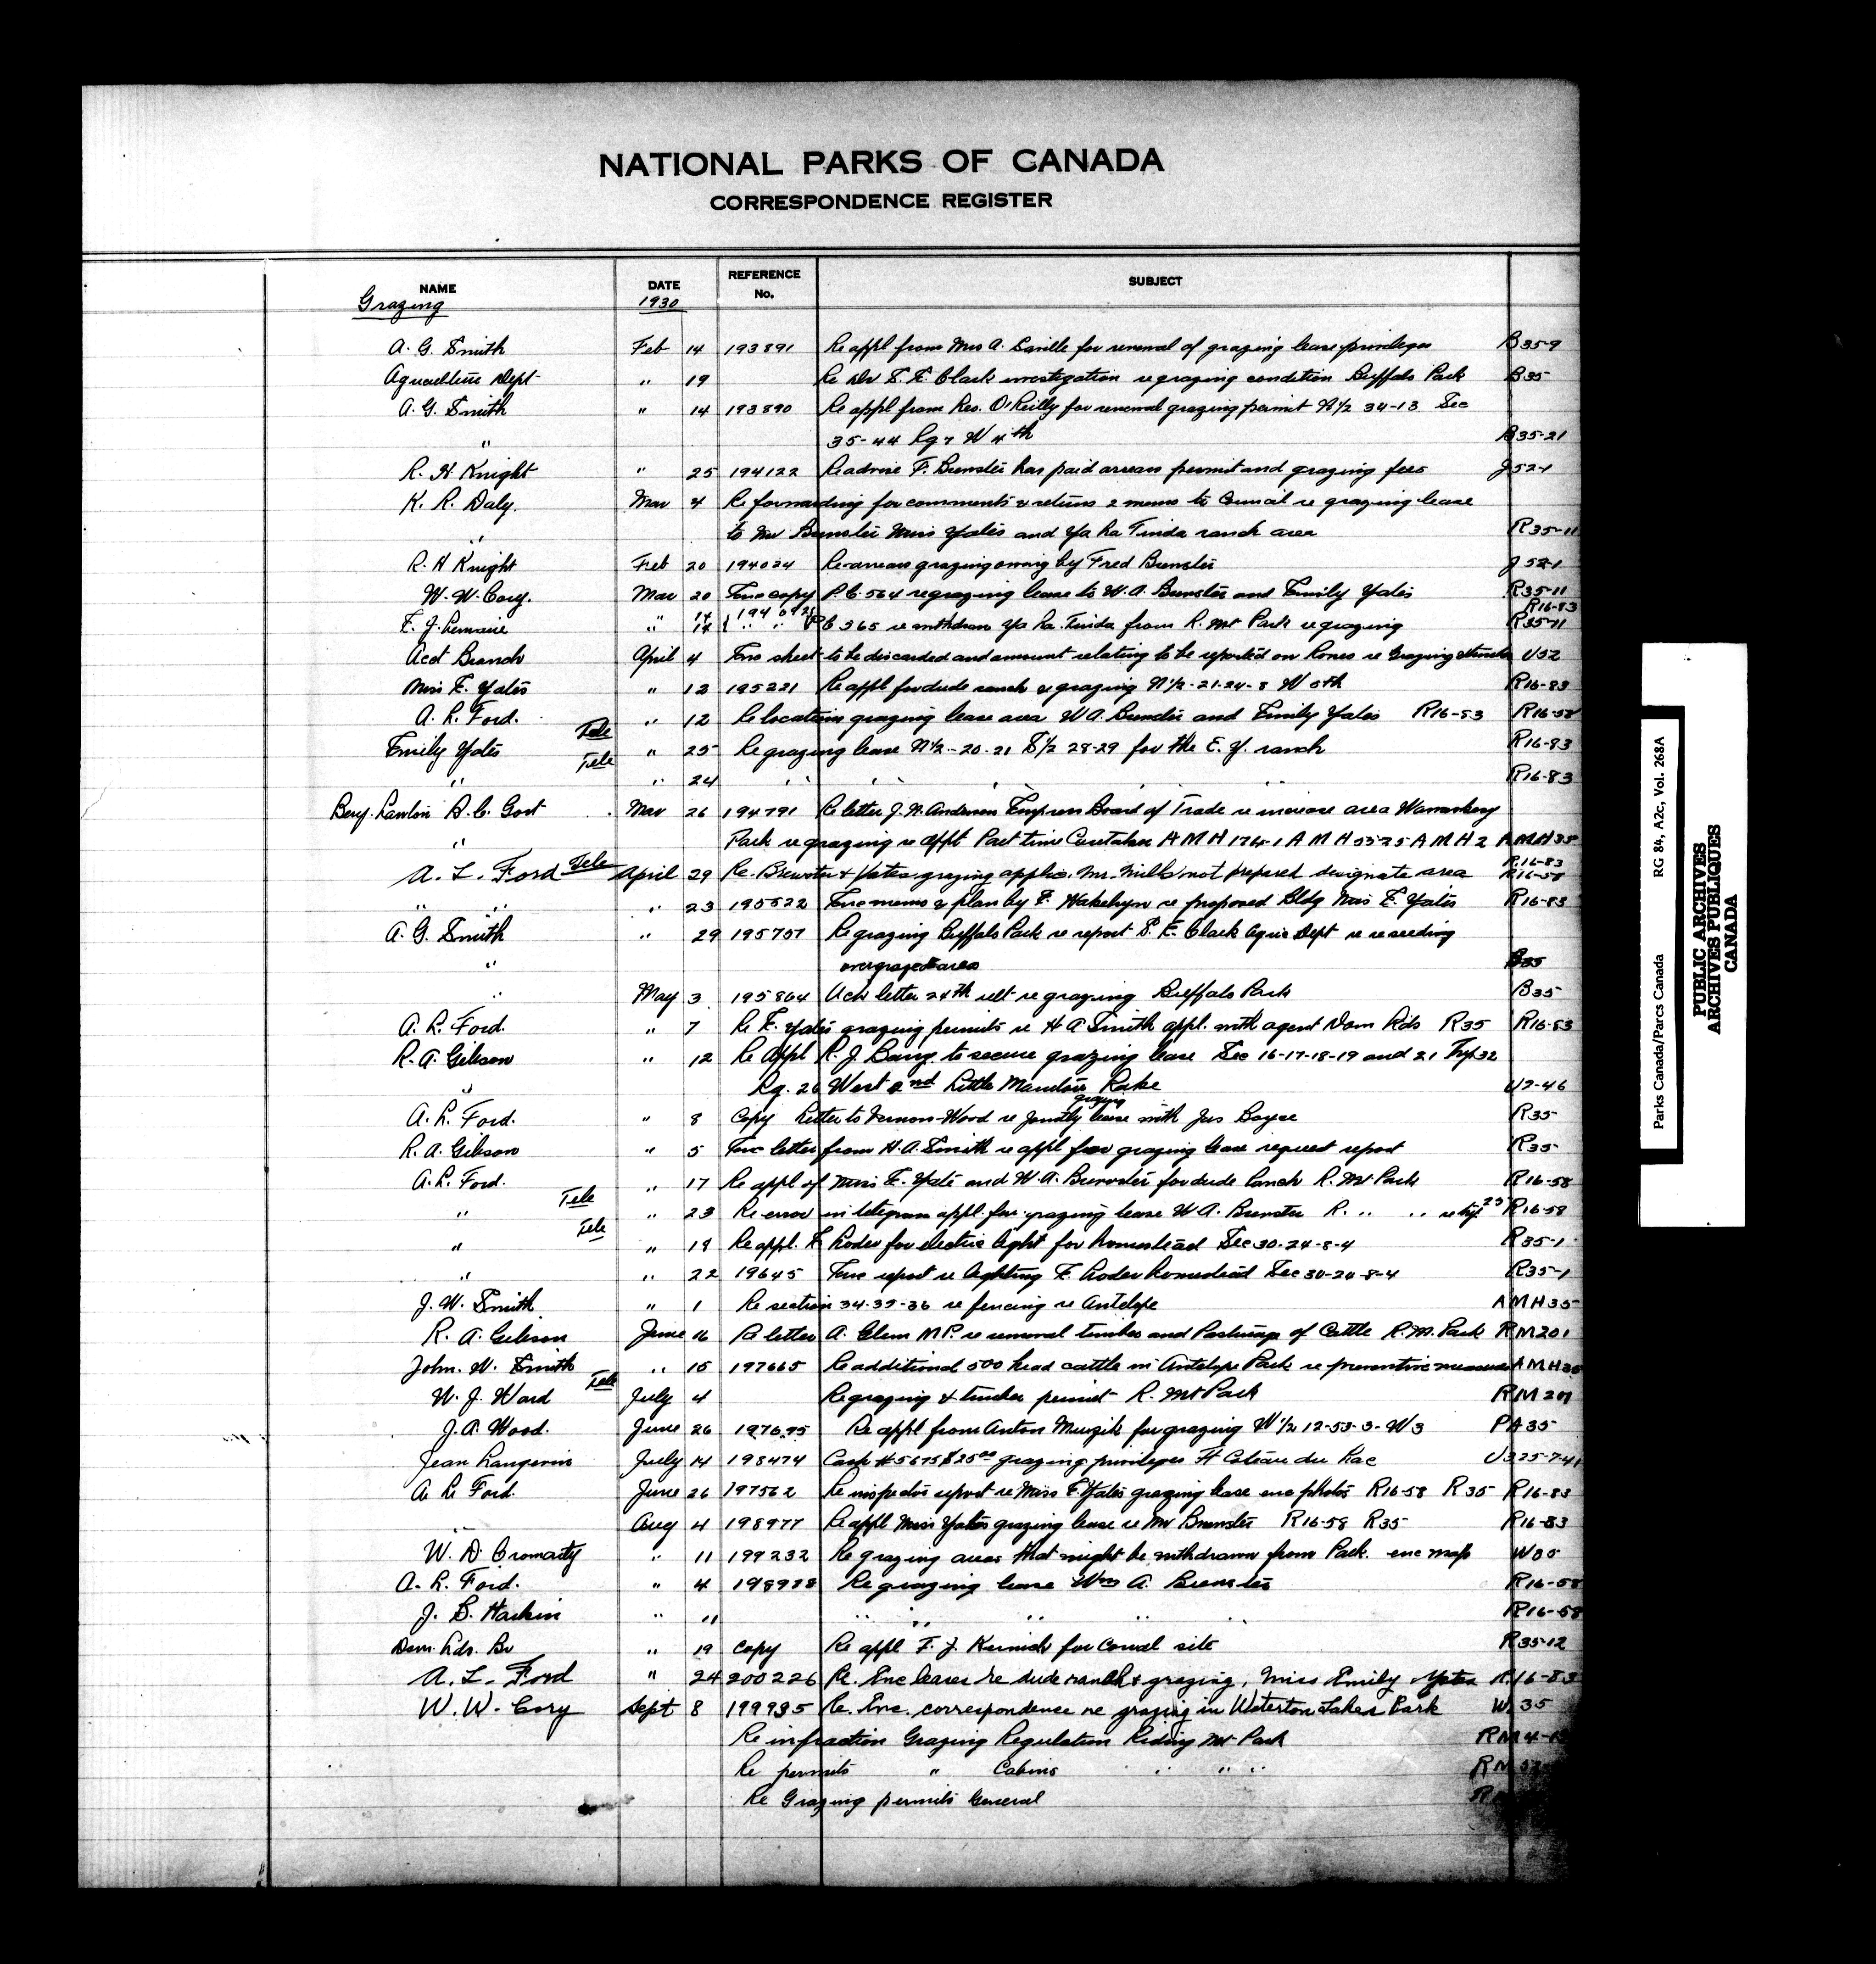 NATIONAL PARKS OF CANADA
CORRESPONDENCE REGISTER
NAME DATE REFERENCE No. SUBJECT
Grazing 1930
A. G. Smith Feb 14 193891 Re appl from Mrs A. Saville for renewal of grazing lease privileges B35-9
Dept " 19 Re Dr S. E. Clark investigation re grazing condition Buffalo Park B35
A. G. Smith " 14 193890 Re appl from Geo. O'Reilly for renewal grazing permit N½ 34-13 Sec
" 35-44 Rg 7 W 4th B35-21
R. H Knight " 25 194122 Re advise F. Brewster has paid arrears permit and grazing fees J52-1
K. R. Daly. Mar 4 Re forwarding for comments & return 2 memo to Council re grazing lease
" to Mr Brewster Miss Yates and Ya Ha Tinda ranch area R35-11
R. H Knight Feb 20 194024 Re arrears grazing owing by Fred Brewster J52-1
W. W. Cory. Mar 20 Enc copy P.C. 564 re grazing lease to W. A. Brewster and Emily Yates R35-11
R16-83
E. J. Lemaire " 14 P.C 565 re withdraw Ya Ha Tinda from R. Mt Park re grazing R35-11
Acct Branch April 4 Enc sheet to be discarded and amount relating to be reported on Rones re Grazing U32
Miss E. Yates " 12 195221 Re appl for dude ranch & grazing N½-21-24-8 W 5th R16-83
A. L. Ford. " 12 Re location grazing lease area W A. Brewster and Emily Yates R16-53 R16-58
Tele
Emily Yates " 25 Re grazing lease N½-20-21 S½ 28-29 for the E. Y. ranch R16-83
Tele
" " 24 " " " " R16-83
Benj. Lawton B.C. Govt Mar 26 194791 Re letter J. N. Anderson Empress Board of Trade re increase area Wawaskesy
" Park re grazing re appt Part time Caretaker A M H 176-1 A M H 5525 A M H 2 A M H 35
A. L. Ford Tele April 29 Re. Brewster & Yates grazing applic. Mr. Mills not prepared designate area R16-83
R16-58
" " " 23 195522 Enc memo & plan by E. Wakelyn re proposed Bldg Miss E. Yates R16-83
A. G. Smith " 29 195757 Re grazing Buffalo Park re report S. E. Clark Agric Dept re reseeding
" overgrazed area B35
" May 3 195864 Ack letter 24th ult re grazing Buffalo Park B35
A. L. Ford. " 7 Re E. Yates grazing permits re H A Smith appl. with agent Dom Lds R35 R16-83
R. A. Gibson " 12 Re Appl R. J. Bang to secure grazing lease Sec 16-17-18-19 and 21 Twp 32
" Rg. 26 West 2nd Little Manitou Lake U2-46
A. L. Ford. " 8 Copy Letter to Vernon-Wood re jointly grazing lease with Jas Boyce R35
R. A. Gibson " 5 Enc letter from H. A. Smith re appl for grazing lease request report R35
A. L. Ford. " 17 Re appl of Miss E. Yates and W. A. Brewster for dude ranch R. Mt Park R16-58
" Tele " 23 Re error in telegram appl. for grazing lease W A. Brewster R. " " R16-58
" Tele " 19 Re appl. F. Loder for electric light for homestead Sec 30-24-8-4 R35-1
" " 22 19645 Enc report re lighting F. Loder homestead Sec 30-24-8-4 R35-1
J. W. Smith " 1 Re section 34-35-36 re fencing re Antelope A M H 35
R. A. Gibson June 16 Re letter A. Glenn M.P. re removal timber and Pasturage of Cattle R. M. Park RM201
John. W. Smith " 15 197665 Re additional 500 head cattle in Antelope Park re preventive measures A M H 35
W. J. Ward Tele July 4 Re grazing & timber permit R. Mt Park RM 201
J. A. Wood. June 26 197695 Re appl from Anton Muzik for grazing W½ 12-53-3-W3 PA35
Jean Langevin July 14 198474 Cash # 5675 $25.00 grazing privileges Ft Coteau du Lac U325-7-41
A. L Ford. June 26 197562 Re inspectors report re Miss E. Yates grazing lease enc photos R16-58 R35 R16-83
" Aug 4 198977 Re appl Miss Yates grazing lease re Mr Brewster R16-58 R35 R16-83
W. D. Cromarty " 11 199232 Re grazing areas that might be withdrawn from Park. enc map W35
A. L. Ford. " 4 198978 Re grazing lease Wm A. Brewster R16-58
J. B. Harkin " 11 " " " " " R16-58
Dom. Lds. Br " 19 Copy Re appl F. J. for Corral site R35-12
A. L. Ford " 24 200226 Re. Enc leases re dude ranch & grazing, Miss Emily Yates R16-83
W. W. Cory Sept 8 199935 Re. Enc. correspondence re grazing in Waterton Lakes Park W. 35
Re infraction Grazing Regulation Riding Mt Park
Re permits " Cabins " " "
Re Grazing permits General
Parks Canada/Parcs Canada RG 84, A2c, Vol. 268A
PUBLIC ARCHIVES
ARCHIVES PUBLIQUES
CANADA